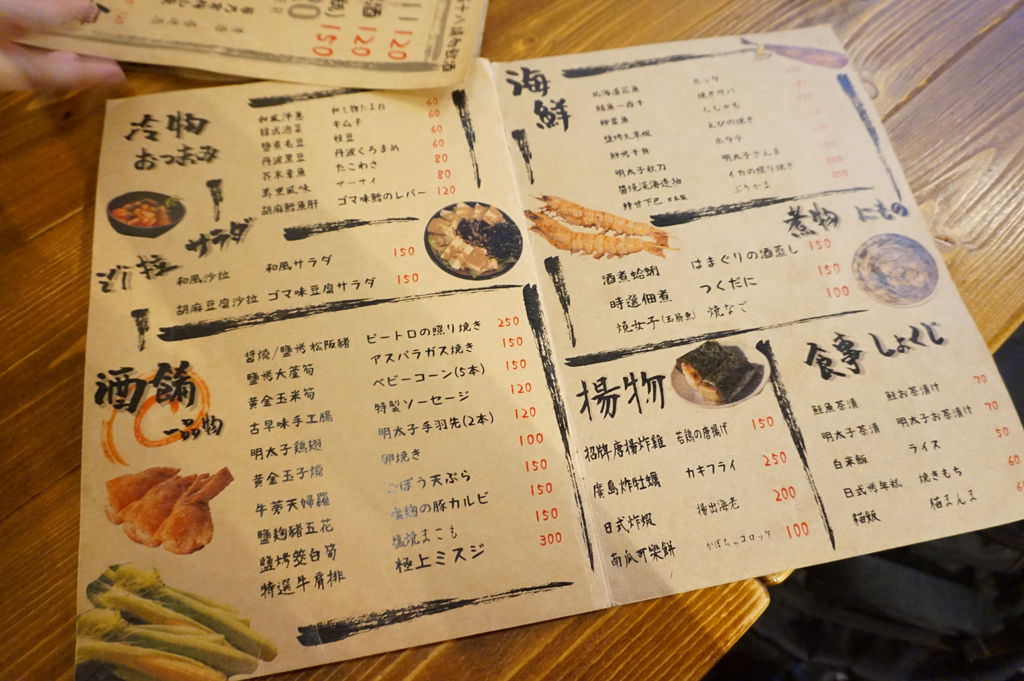 酒
120
120
150
冷物
おつまみ
和風洋蔥 和し物たまね 60
韓式泡菜 キムチ 60
鹽煮毛豆 枝豆 60
丹波黑豆 丹波くろまめ 60
芥末章魚 たこわさ 80
ザーサイ 80
胡麻鱈魚肝 ゴマ味鱈のレバー 120
沙拉 サラダ
和風沙拉 和風サラダ 150
胡麻豆腐沙拉 ゴマ味豆腐サラダ 150
酒餚
一品物
醬燒/鹽烤松阪豬 ピートロの照り焼き 250
鹽烤大蘆筍 アスパラガス焼き 150
黃金玉米筍 ベビーコーン(5本) 150
古早味手工腸 特製ソーセージ 120
明太子鶏翅 明太子手羽先(2本) 120
黃金玉子燒 卵焼き 100
牛蒡天婦羅 ごぼう天ぷら 150
鹽麴豬五花 塩麹の豚カルビ 150
鹽烤筊白筍 塩焼まこも 150
特選牛肩排 極上ミスジ 300
海鮮
北海道花魚 ホッケ
鯖魚一夜干 焼きサバ
柳葉魚 ししゃも
鹽烤大草蝦 えびの焼き
明太子秋刀 明太子さんま
イカの照り焼き 200
ぶりかま
煮物 にもの
酒煮蛤蜊 はまぐりの酒蒸し 150
時選佃煮 つくだに 150
燒女子 焼なご 100
揚物
招牌唐揚炸雞 若鶏の唐揚げ 150
廣島炸牡蠣 カキフライ 250
日式炸蝦 揚出海老 200
南瓜可樂餅 かぼちゃコロッケ 100
食事 しょくじ
鮭魚茶漬 鮭お茶漬け 70
明太子茶漬 明太子お茶漬け 70
白米飯 ライス 50
日式烤年糕 焼きもち 60
貓飯 猫まんま 60